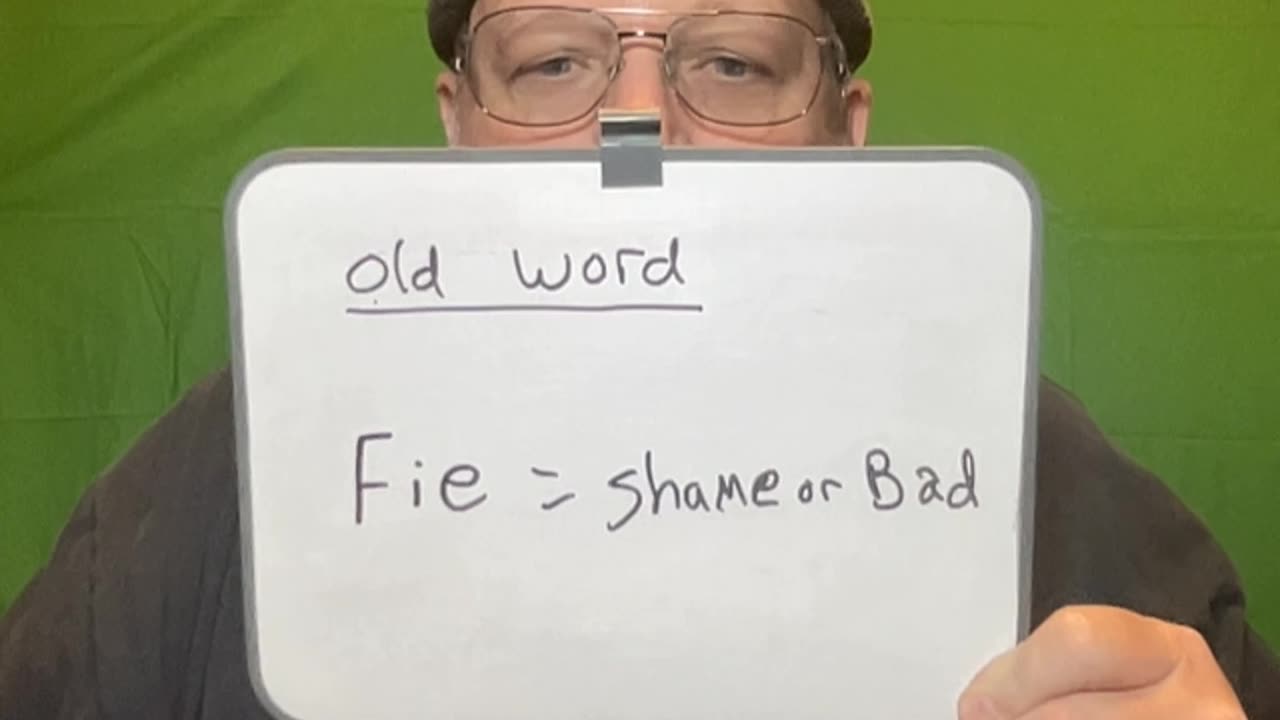 Old Word
Fie = Shame or Bad